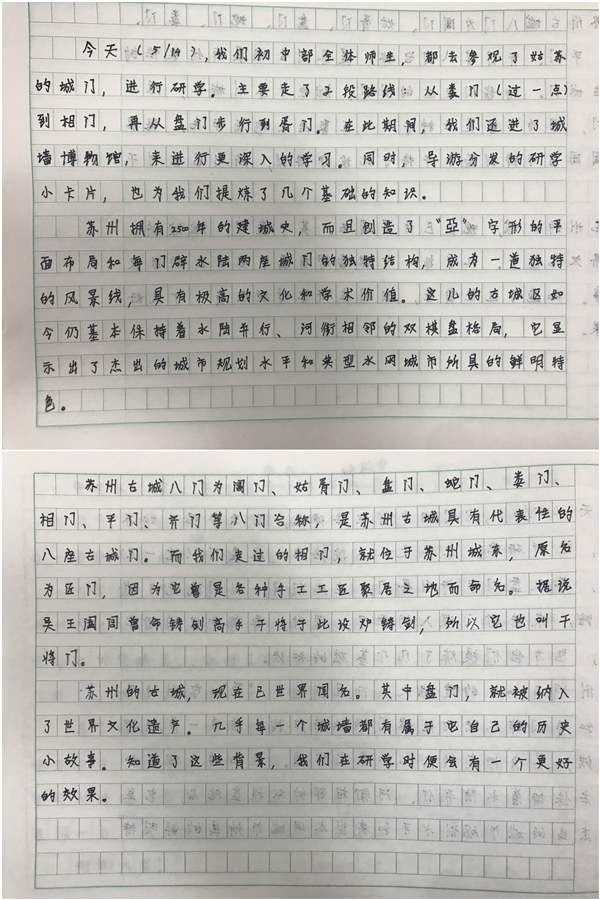 今天（5/19），我们初中部全体师生，都去参观了姑苏
的城门，进行研学。主要走了2段路线：从娄门（过一点）
到相门，再从盘门步行到胥门。在此期间，我们还进了城
墙博物馆，来进行更深入的学习。同时，导游分发的研学
小卡片，也为我们提炼了几个基础的知识。
苏州拥有2500年的建城史，而且创造了“亞”字形的平
面布局和每门辟水陆两座城门的独特结构，成为一道独特
的风景线，具有极高的文化和学术价值。这儿的古城区如
今仍基本保持着水陆并行、河街相邻的双棋盘格局，它显
示出了杰出的城市规划水平和典型水网城市所具的鲜明特
色。
苏州古城八门为阊门、姑胥门、盘门、蛇门、娄门、
相门、平门、齐门等八门名称，是苏州古城具有代表性的
八座古城门。而我们走过的相门，就位于苏州城东，原名
为匠门，因为它曾是各种手工工匠聚居之地而命名。据说
吴王阖闾曾命铸剑高手干将于此设炉铸剑，所以它也叫干
将门。
苏州的古城，现在已世界闻名。其中盘门，就被纳入
了世界文化遗产。几乎每一个城墙都有属于它自己的历史
小故事。知道了这些背景，我们在研学时便会有一个更好
的效果。